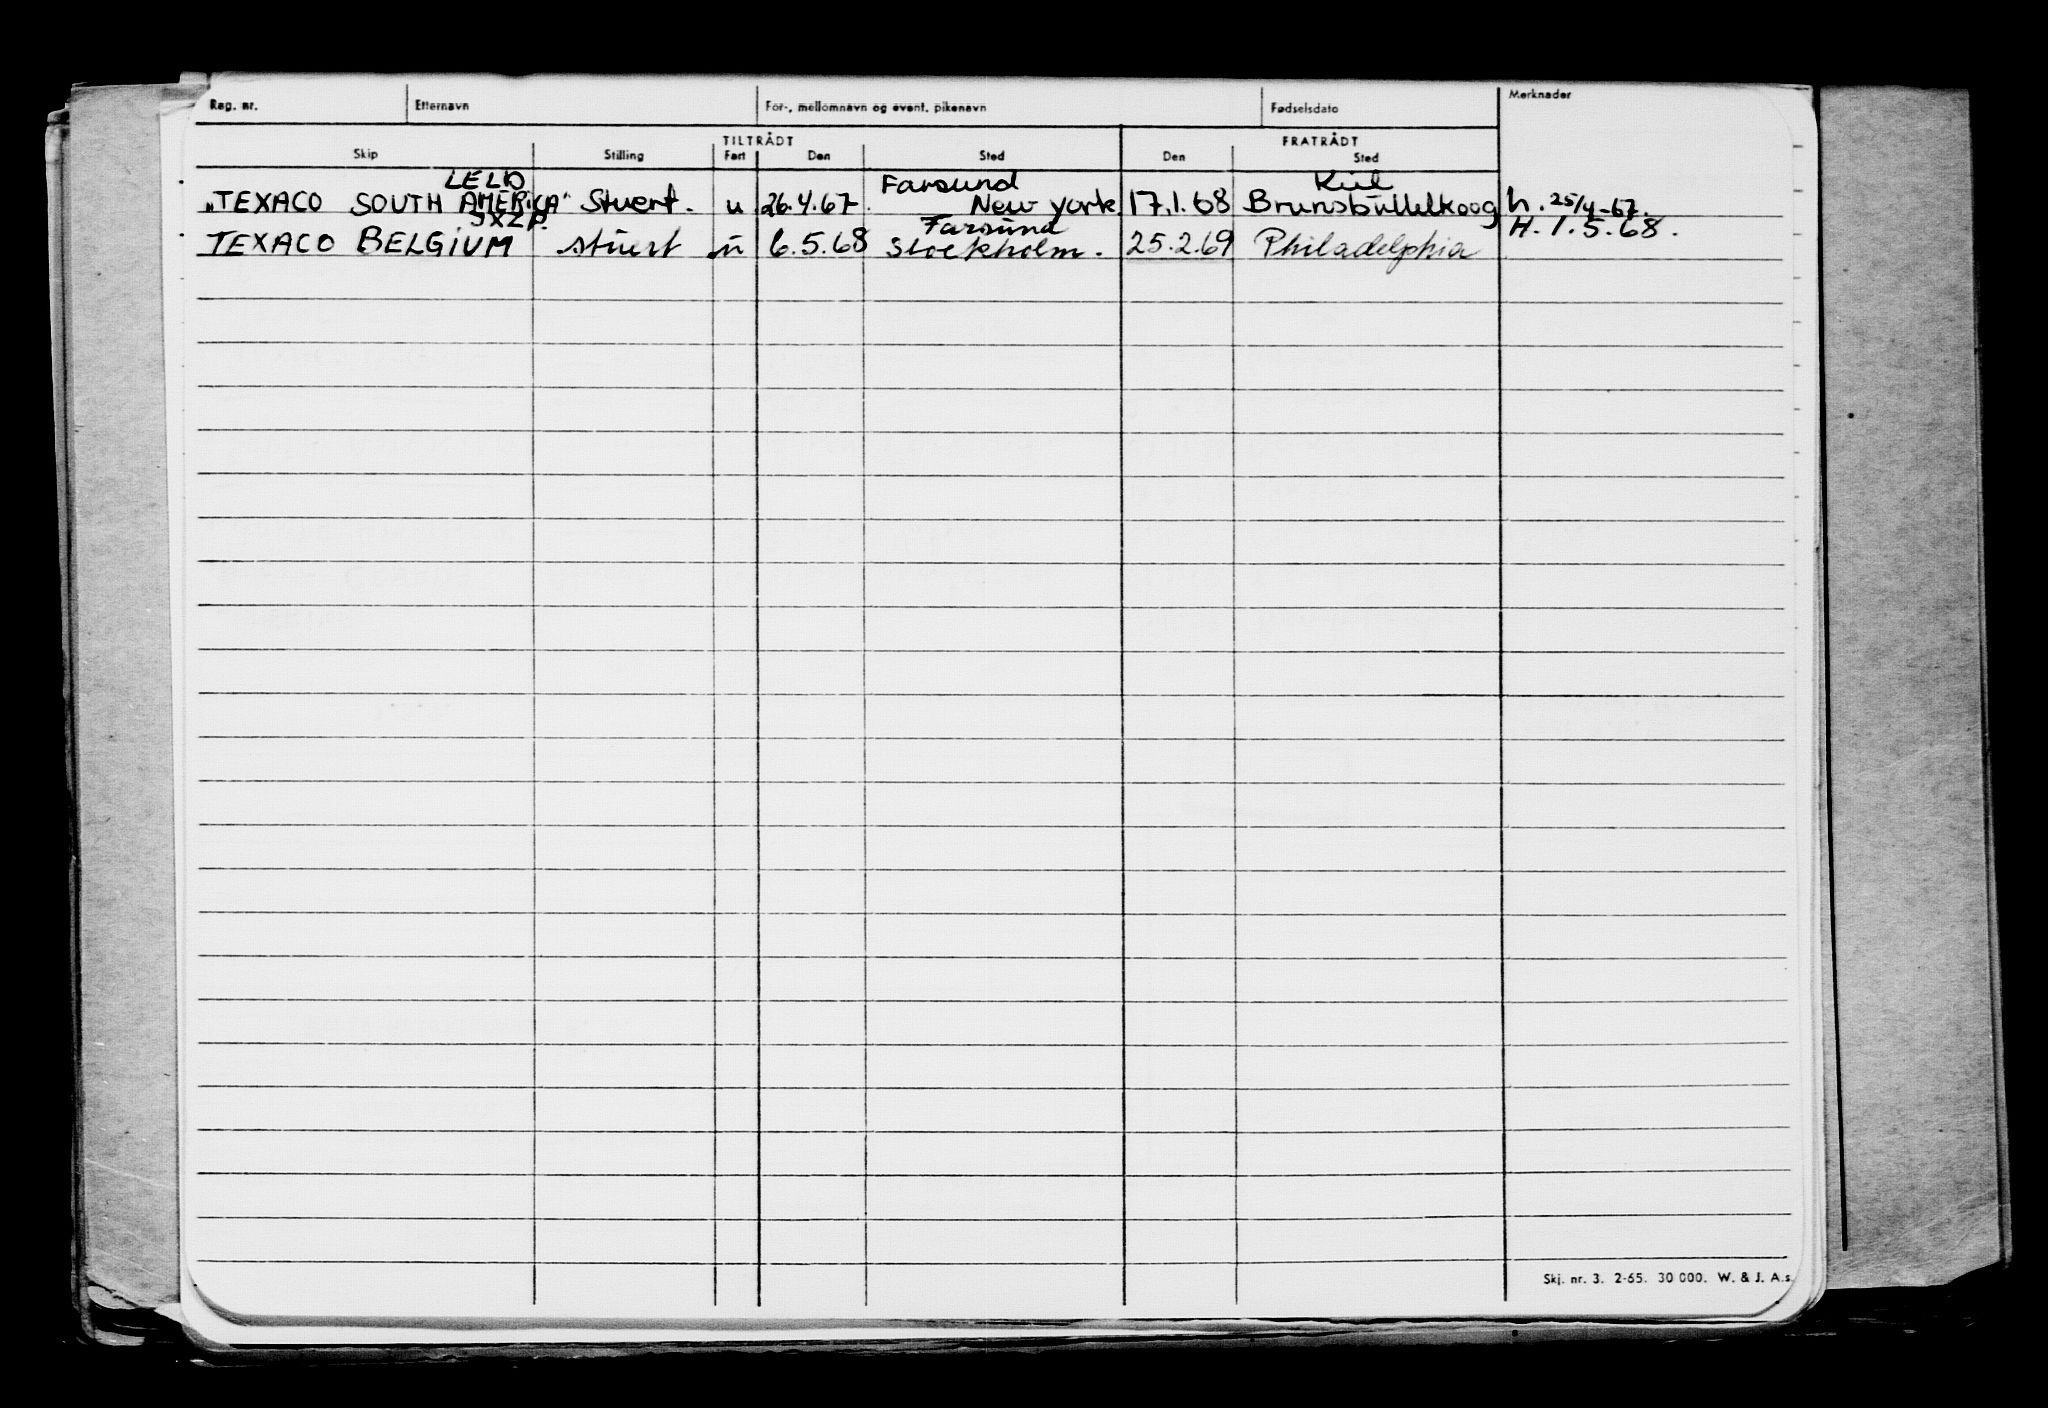 Reg. nr. Etternavn For-, mellomnavn og event. pikenavn Fødselsdato Merknader
TILTRÅDT FRATRÅDT
Skip Stilling Fart Den Sted Den Sted
LELD Farsund Kiel
"TEXACO SOUTH AMERICA" Stuert. u 26.4.67. New york 17.1.68 Brunsbüttelkoog h. 25/4-67.
JXZP. Farsund H. 1.5.68.
TEXACO BELGIUM stuert u 6.5.68 Stockholm. 25.2.69 Philadelphia
Skj. nr. 3. 2-65. 30 000. W. & J. A.s.